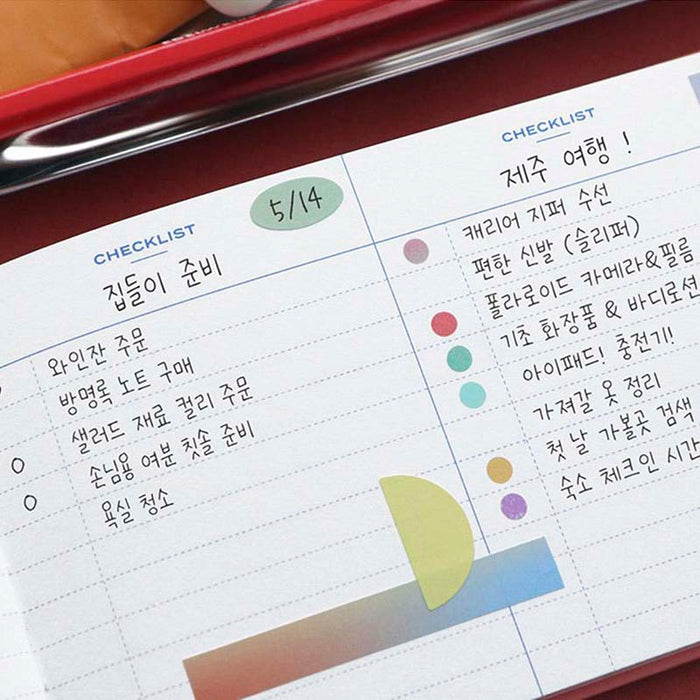 5/14
CHECKLIST
집들이 준비
와인잔 주문
방명록 노트 구매
샐러드 재료 컬리 주문
손님용 여분 칫솔 준비
욕실 청소
CHECKLIST
제주 여행 !
캐리어 지퍼 수선
편한 신발 (슬리퍼)
폴라로이드 카메라&필름
기초 화장품 & 바디로션
아이패드! 충전기!
가져갈 옷 정리
첫 날 가볼곳 검색
숙소 체크인 시간